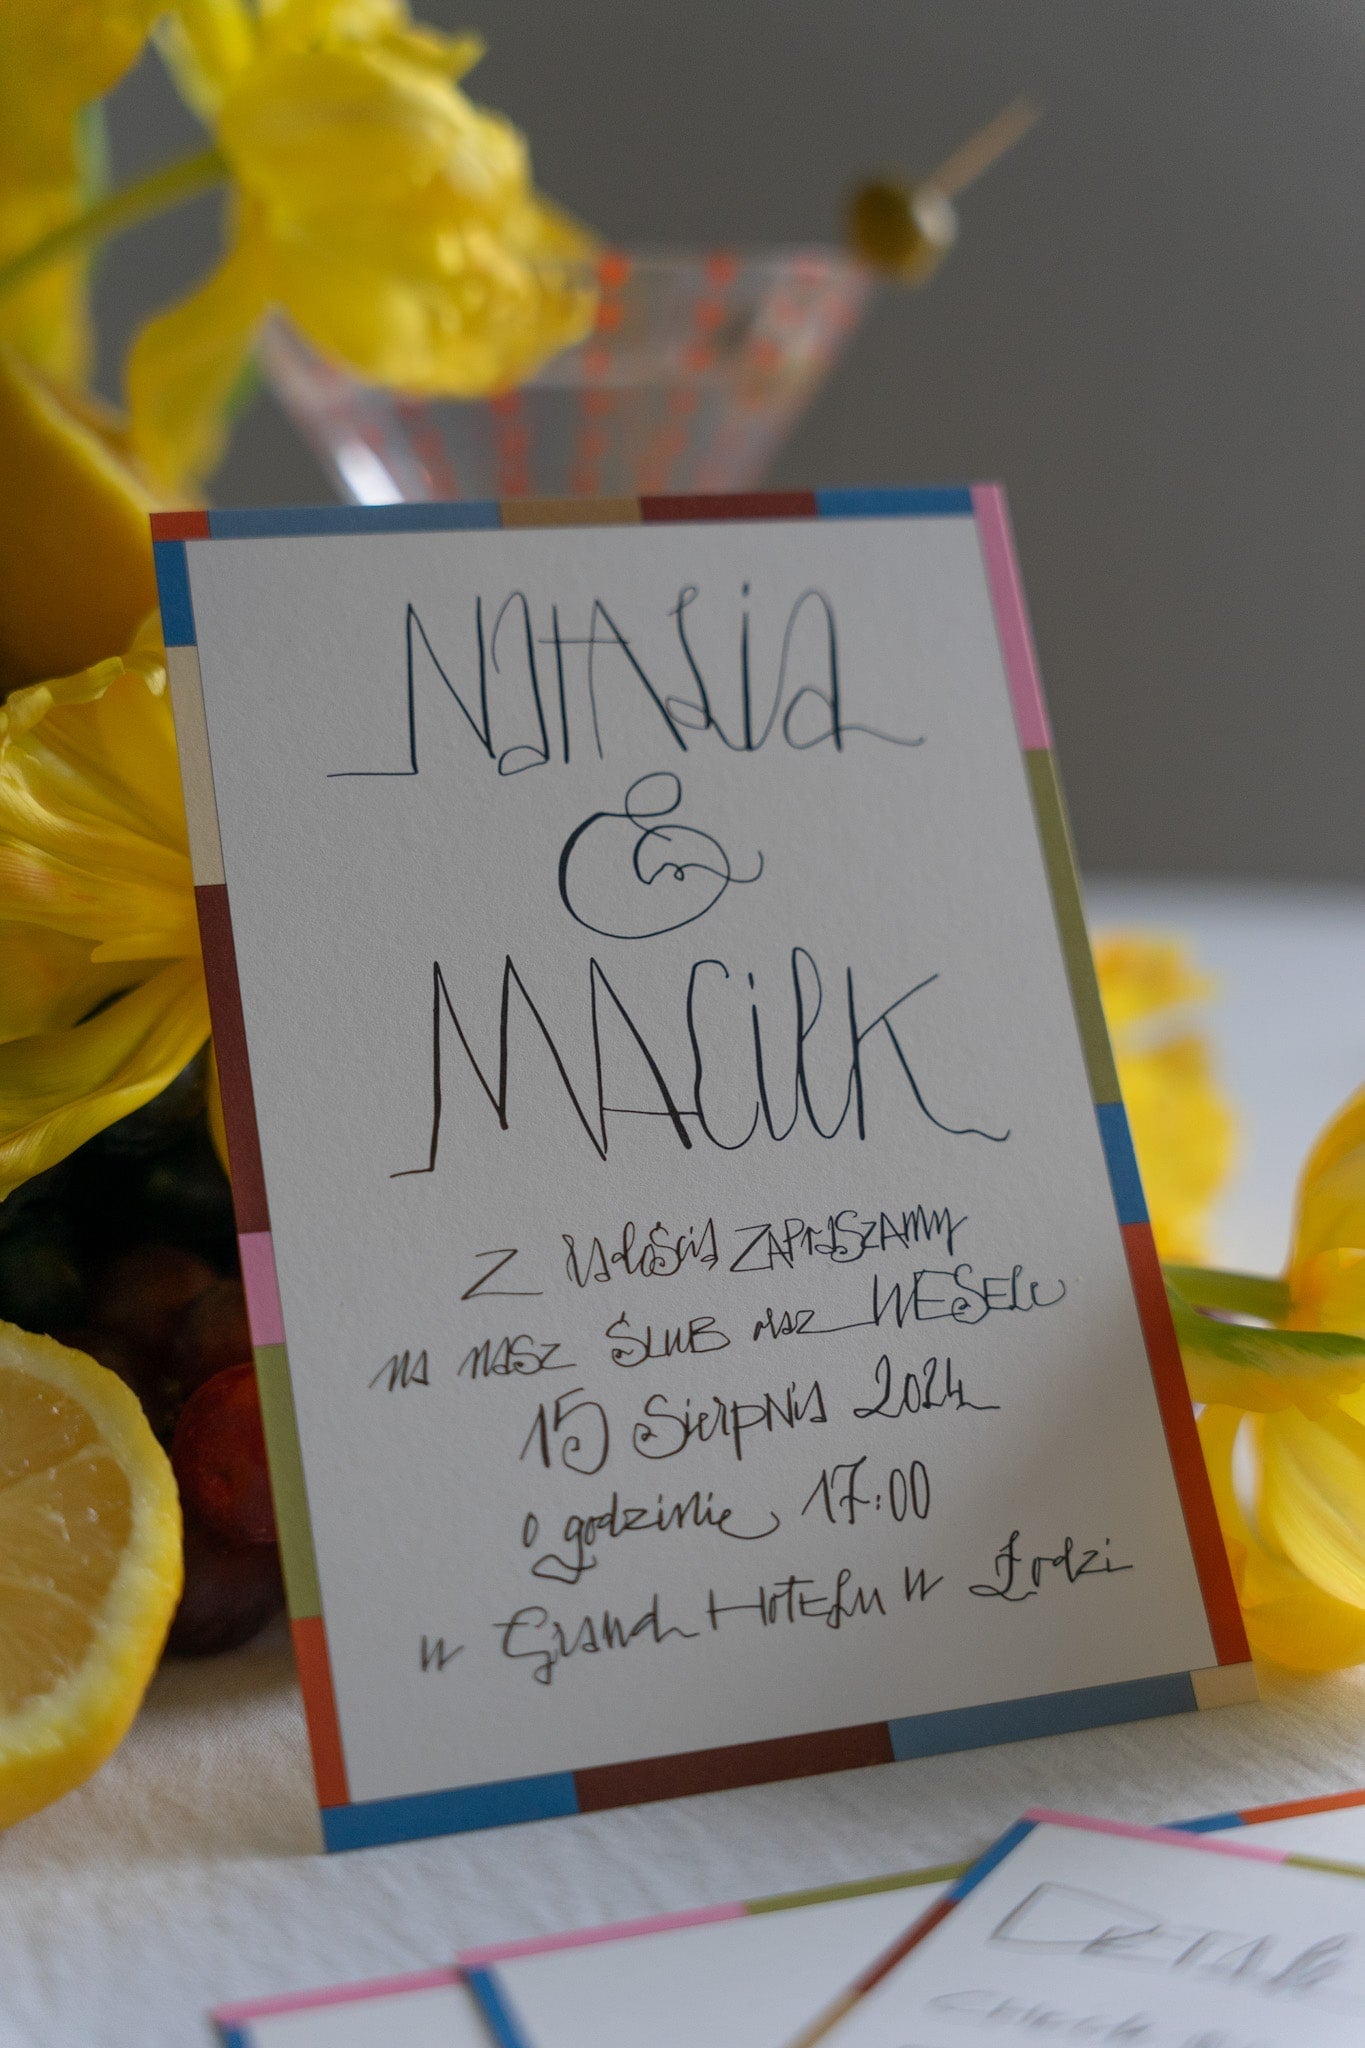 Natalia
&
Maciek
Z radością zapraszamy
na nasz ślub oraz wesele
15 sierpnia 2024
o godzinie 17:00
w Grand Hotelu w Łodzi